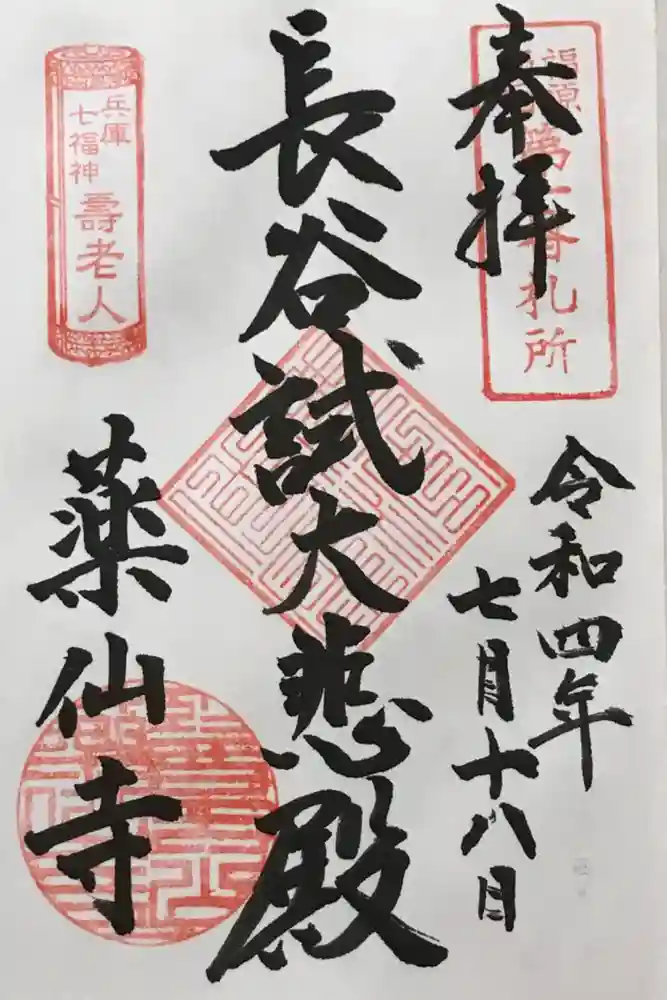 奉拝
福原
第一番札所
令和四年
七月十八日
長谷試大悲殿
兵庫
七福神
壽老人
薬仙寺